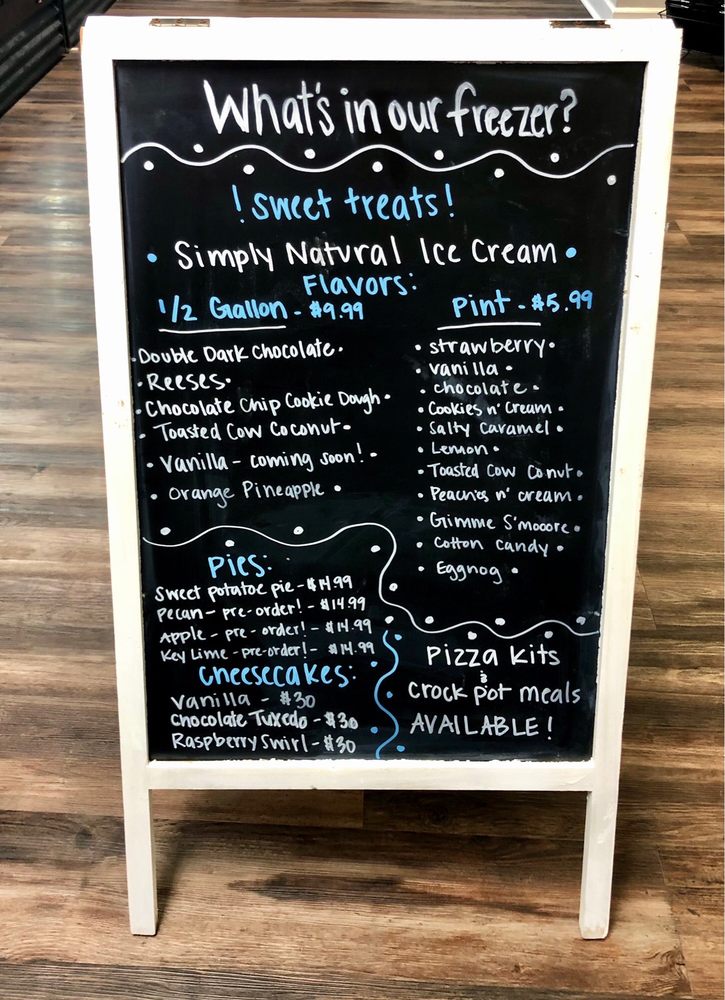 What's in our freezer?
! sweet treats!
• Simply Natural Ice Cream •
Flavors:
1/2 Gallon - $9.99
• Double Dark Chocolate •
• Reeses •
• Chocolate Chip Cookie Dough •
• Toasted Cow Coconut •
• Vanilla - coming soon! •
• Orange Pineapple •
Pint - $5.99
• strawberry •
• vanilla •
• chocolate •
• Cookies n' Cream •
• Salty Caramel •
• Lemon •
• Toasted Cow Conut •
• Peaches n' cream •
• Gimme S'mooore •
• Cotton Candy •
• Eggnog •
Pies:
Sweet potatoe pie - $14.99
Pecan - pre-order! - $14.99
Apple - pre-order! - $14.99
Key Lime - pre-order! - $14.99
Cheesecakes:
Vanilla - $30
Chocolate Tuxedo - $30
Raspberry Swirl - $30
Pizza Kits
&
Crock pot meals
AVAILABLE!